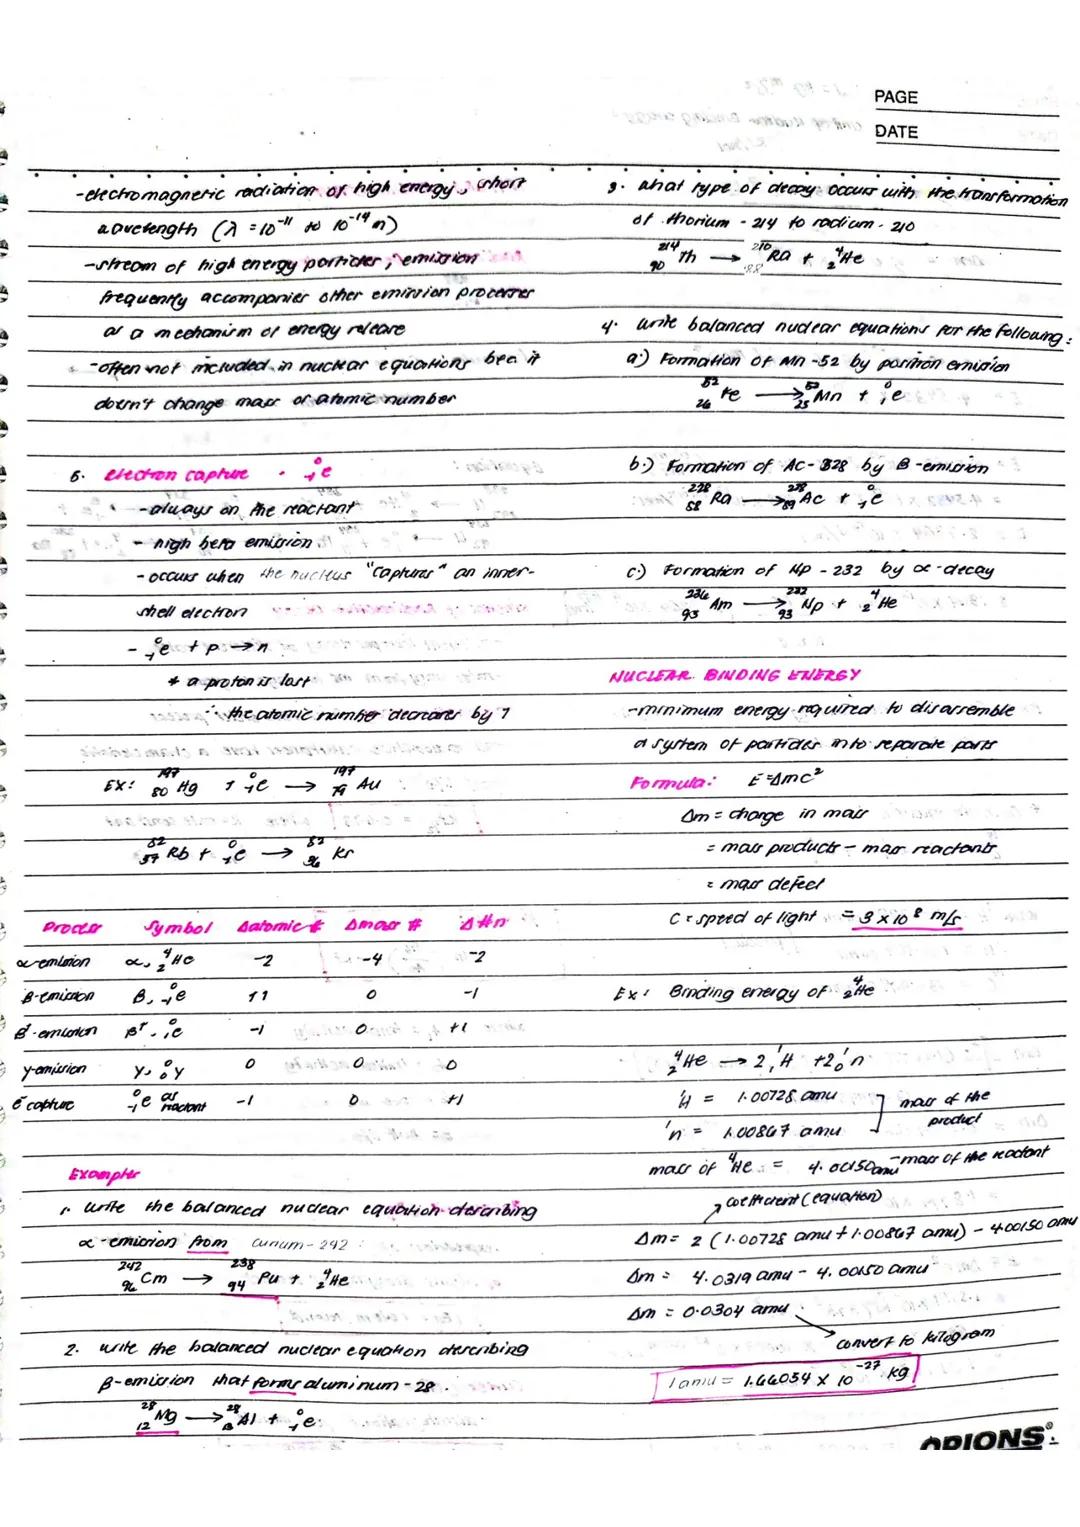 PAGE
DATE
-electromagnetic radiation of high energy, short
wavelength (λ = 10⁻¹¹ to 10⁻¹⁴ m)
-stream of high energy particles; emission
frequently accompanies other emission processes
as a mechanism of energy release
-often not included in nuclear equations bec. it
doesn't change mass or atomic number
5. electron capture - ⁰₋₁e
-always on the reactant
- high beta emission
- occurs when the nucleus "captures" an inner-
shell electron
- ⁰₋₁e + p → n
* a proton is lost
∴ the atomic number decreases by 1
EX: ¹⁹⁷₈₀Hg + ⁰₋₁e → ¹⁹⁷₇₉Au
⁸²₃₇Rb + ⁰₋₁e → ⁸²₃₆Kr
Process Symbol Δatomic # Δmass # Δ#n
α-emission α, ⁴₂He -2 -4 -2
β-emission β, ⁰₋₁e +1 0 -1
β⁺-emission β⁺, ⁰₁e -1 0 +1
γ-emission γ, ⁰₀γ 0 0 0
e⁻ capture ⁰₋₁e as reactant -1 0 +1
Examples
1. write the balanced nuclear equation describing
α-emission from curium-242
²⁴²₉₆Cm → ²³⁸₉₄Pu + ⁴₂He
2. write the balanced nuclear equation describing
β-emission that forms aluminum-28.
²⁸₁₂Mg → ²⁸₁₃Al + ⁰₋₁e
3. what type of decay occurs with the transformation
of thorium - 214 to radium - 210
²¹⁴₉₀Th → ²¹⁰₈₈Ra + ⁴₂He
4. write balanced nuclear equations for the following:
a.) Formation of Mn-52 by positron emission
⁵²₂₆Fe → ⁵²₂₅Mn + ⁰₁e
b.) Formation of Ac-228 by β-emission
²²⁸₈₈Ra → ²²⁸₈₉Ac + ⁰₋₁e
c.) Formation of Np - 232 by α-decay
²³⁶₉₃Am → ²³²₉₃Np + ⁴₂He
NUCLEAR BINDING ENERGY
-minimum energy required to disassemble
a system of particles into separate parts
Formula: E=Δmc²
Δm = change in mass
= mass products - mass reactants
= mass defect
C = speed of light = 3 x 10⁸ m/s
Ex: Binding energy of ⁴₂He
⁴₂He → 2¹₁H + 2¹₀n
¹H = 1.00728 amu
mass of the
product
¹n = 1.00867 amu
mass of ⁴He = 4.00150amu - mass of the reactant
coefficient (equation)
Δm = 2 (1.00728 amu + 1.00867 amu) - 4.00150 amu
Δm = 4.0319 amu - 4.00150 amu
Δm = 0.0304 amu
convert to kilogram
1 amu = 1.66054 x 10⁻²⁷ kg
ORIONS